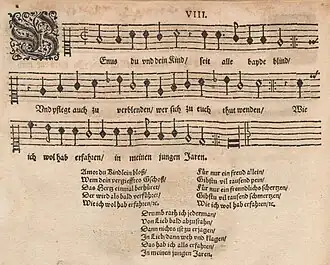 VIII.
VEnus du vnd dein Kind/ seit alle bayde blind/
Vnd pflegt auch zu verblenden/ wer sich zu euch thut wenden/ Wie
ich wol hab erfahren/ in meinen jungen Jaren.
Amor du Kindlein bloß/
Wem dein vergifftes Gschoß/
Das Hertz einmal berhüret/
Der wird als bald verführet/
Wie ich wol hab erfahren/ıc.
Für nur ein freud allein/
Gibstu vil tausend pein/
Für nur ein freundlichs schertzen/
Gibstu vil tausend schmertzen/
Wie ich wol hab erfahren/ıc.
Drumb rath ich jederman/
Von Lieb bald abzustahn/
Dann nichts ist zu erjagen/
In Lieb/ dann weh vnd klagen/
Das hab ich alls erfahren/
In meinen jungen Jaren.